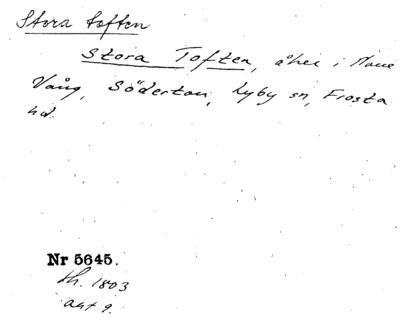 Stora toften
Stora Toften, åker i Norre
Vång, Södertou, Lyby sn, Frosta
hd.
Nr 5645.
sk. 1803
akt 9.